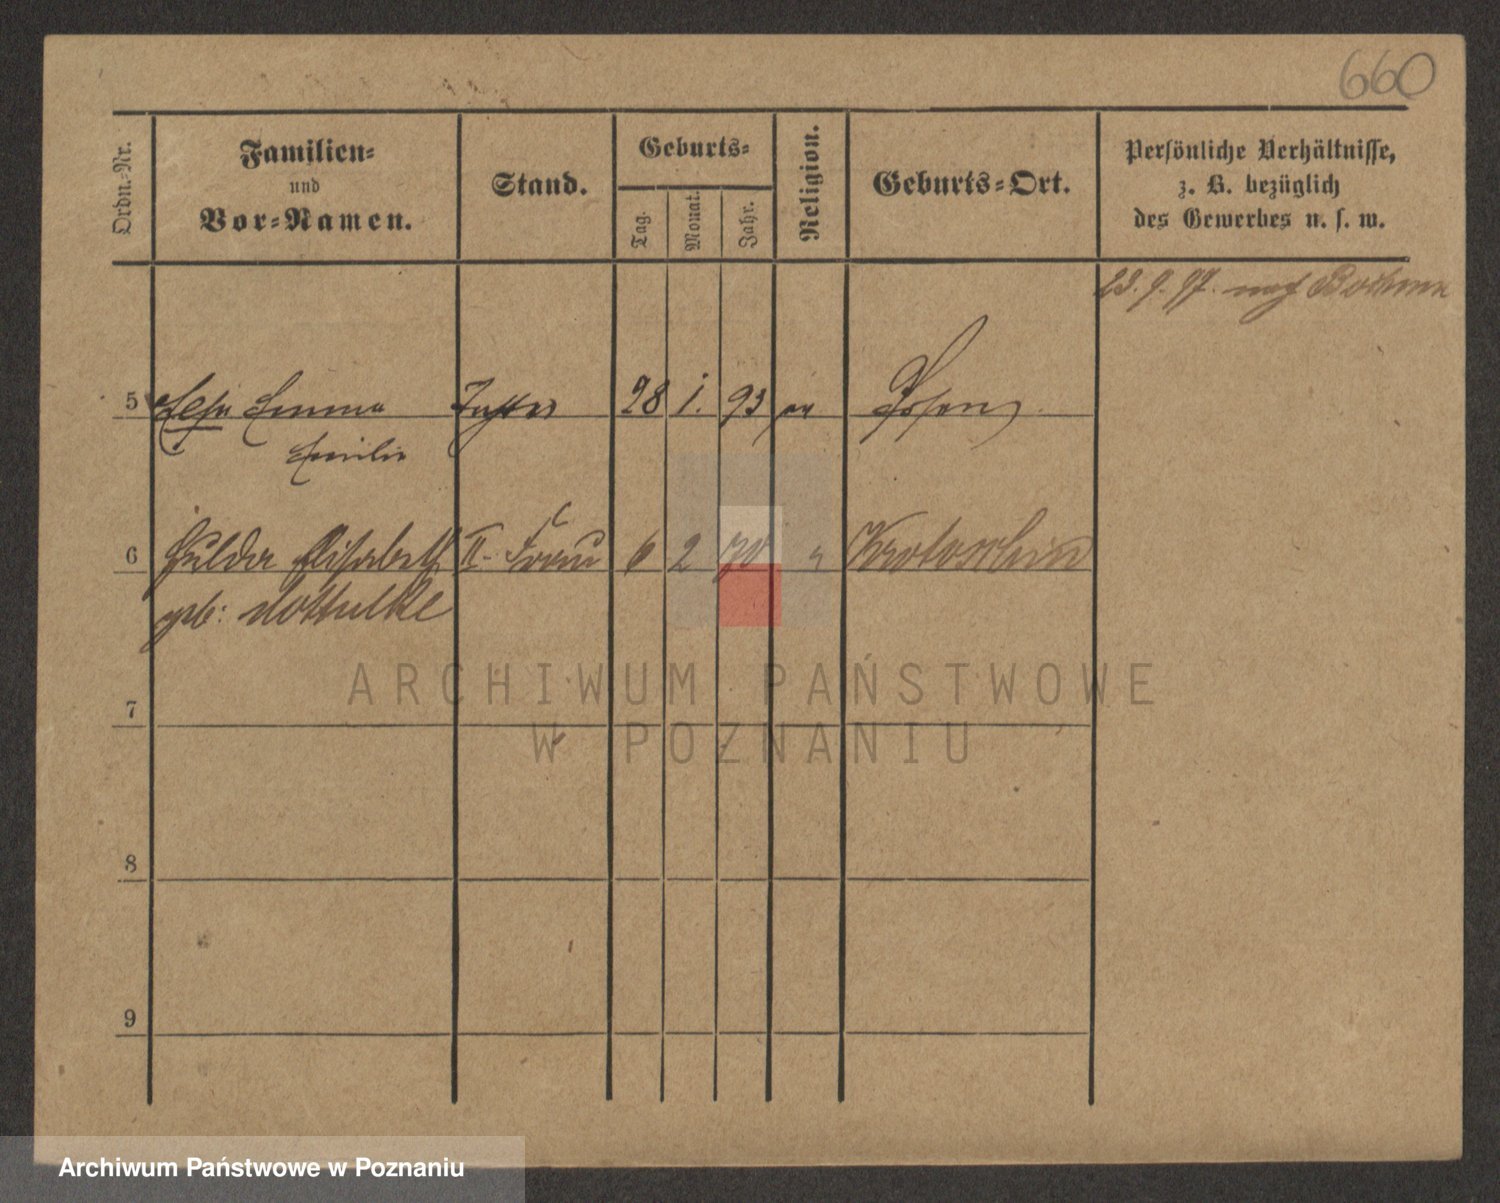 660
Ordn.-Nr.
Familien-
und
Vor-Namen.
Stand.
Geburts-
Tag.
Monat.
Jahr.
Religion.
Geburts-Ort.
Persönliche Verhältnisse,
z. B. bezüglich
des Gewerbes u. s. w.
23. 9. 97. nach
5 Emma 28 1. 93 Posen
Emilie
6 Hulda Elisabeth II. Frau 6 2 70 " Krotoschin
geb:
7
8
9
ARCHIWUM PAŃSTWOWE
W POZNANIU
Archiwum Państwowe w Poznaniu